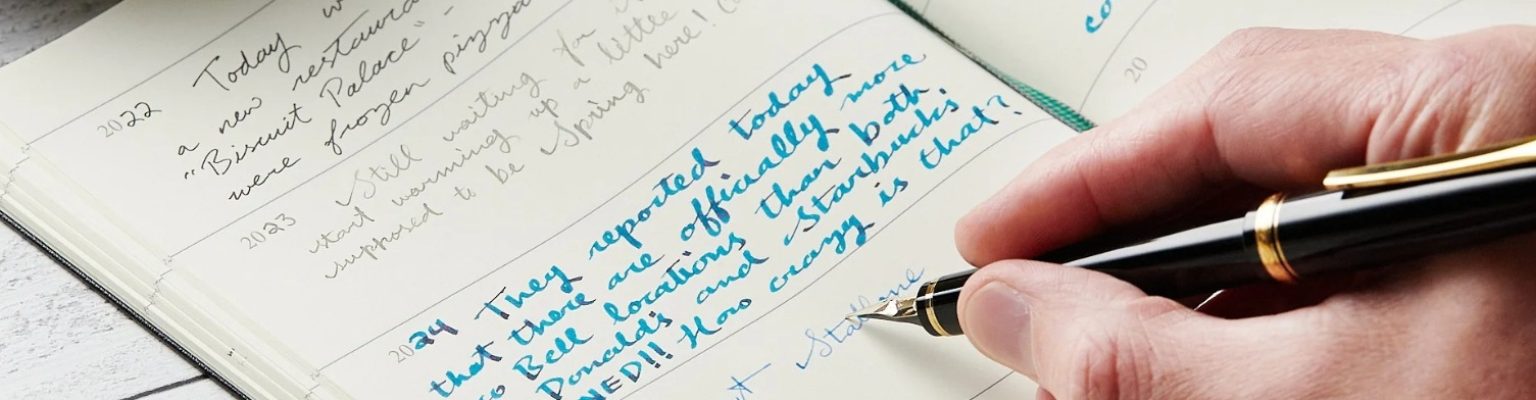 2022 Today w
a new restaura
"Biscuit Palace" -
were frozen pizza
2023 Still waiting for i
start warming up a little
supposed to be Spring here!
2024 They reported today
that there are officially more
co Bell locations than both
Donald's and Starbucks
NED!! How crazy is that?
co
20